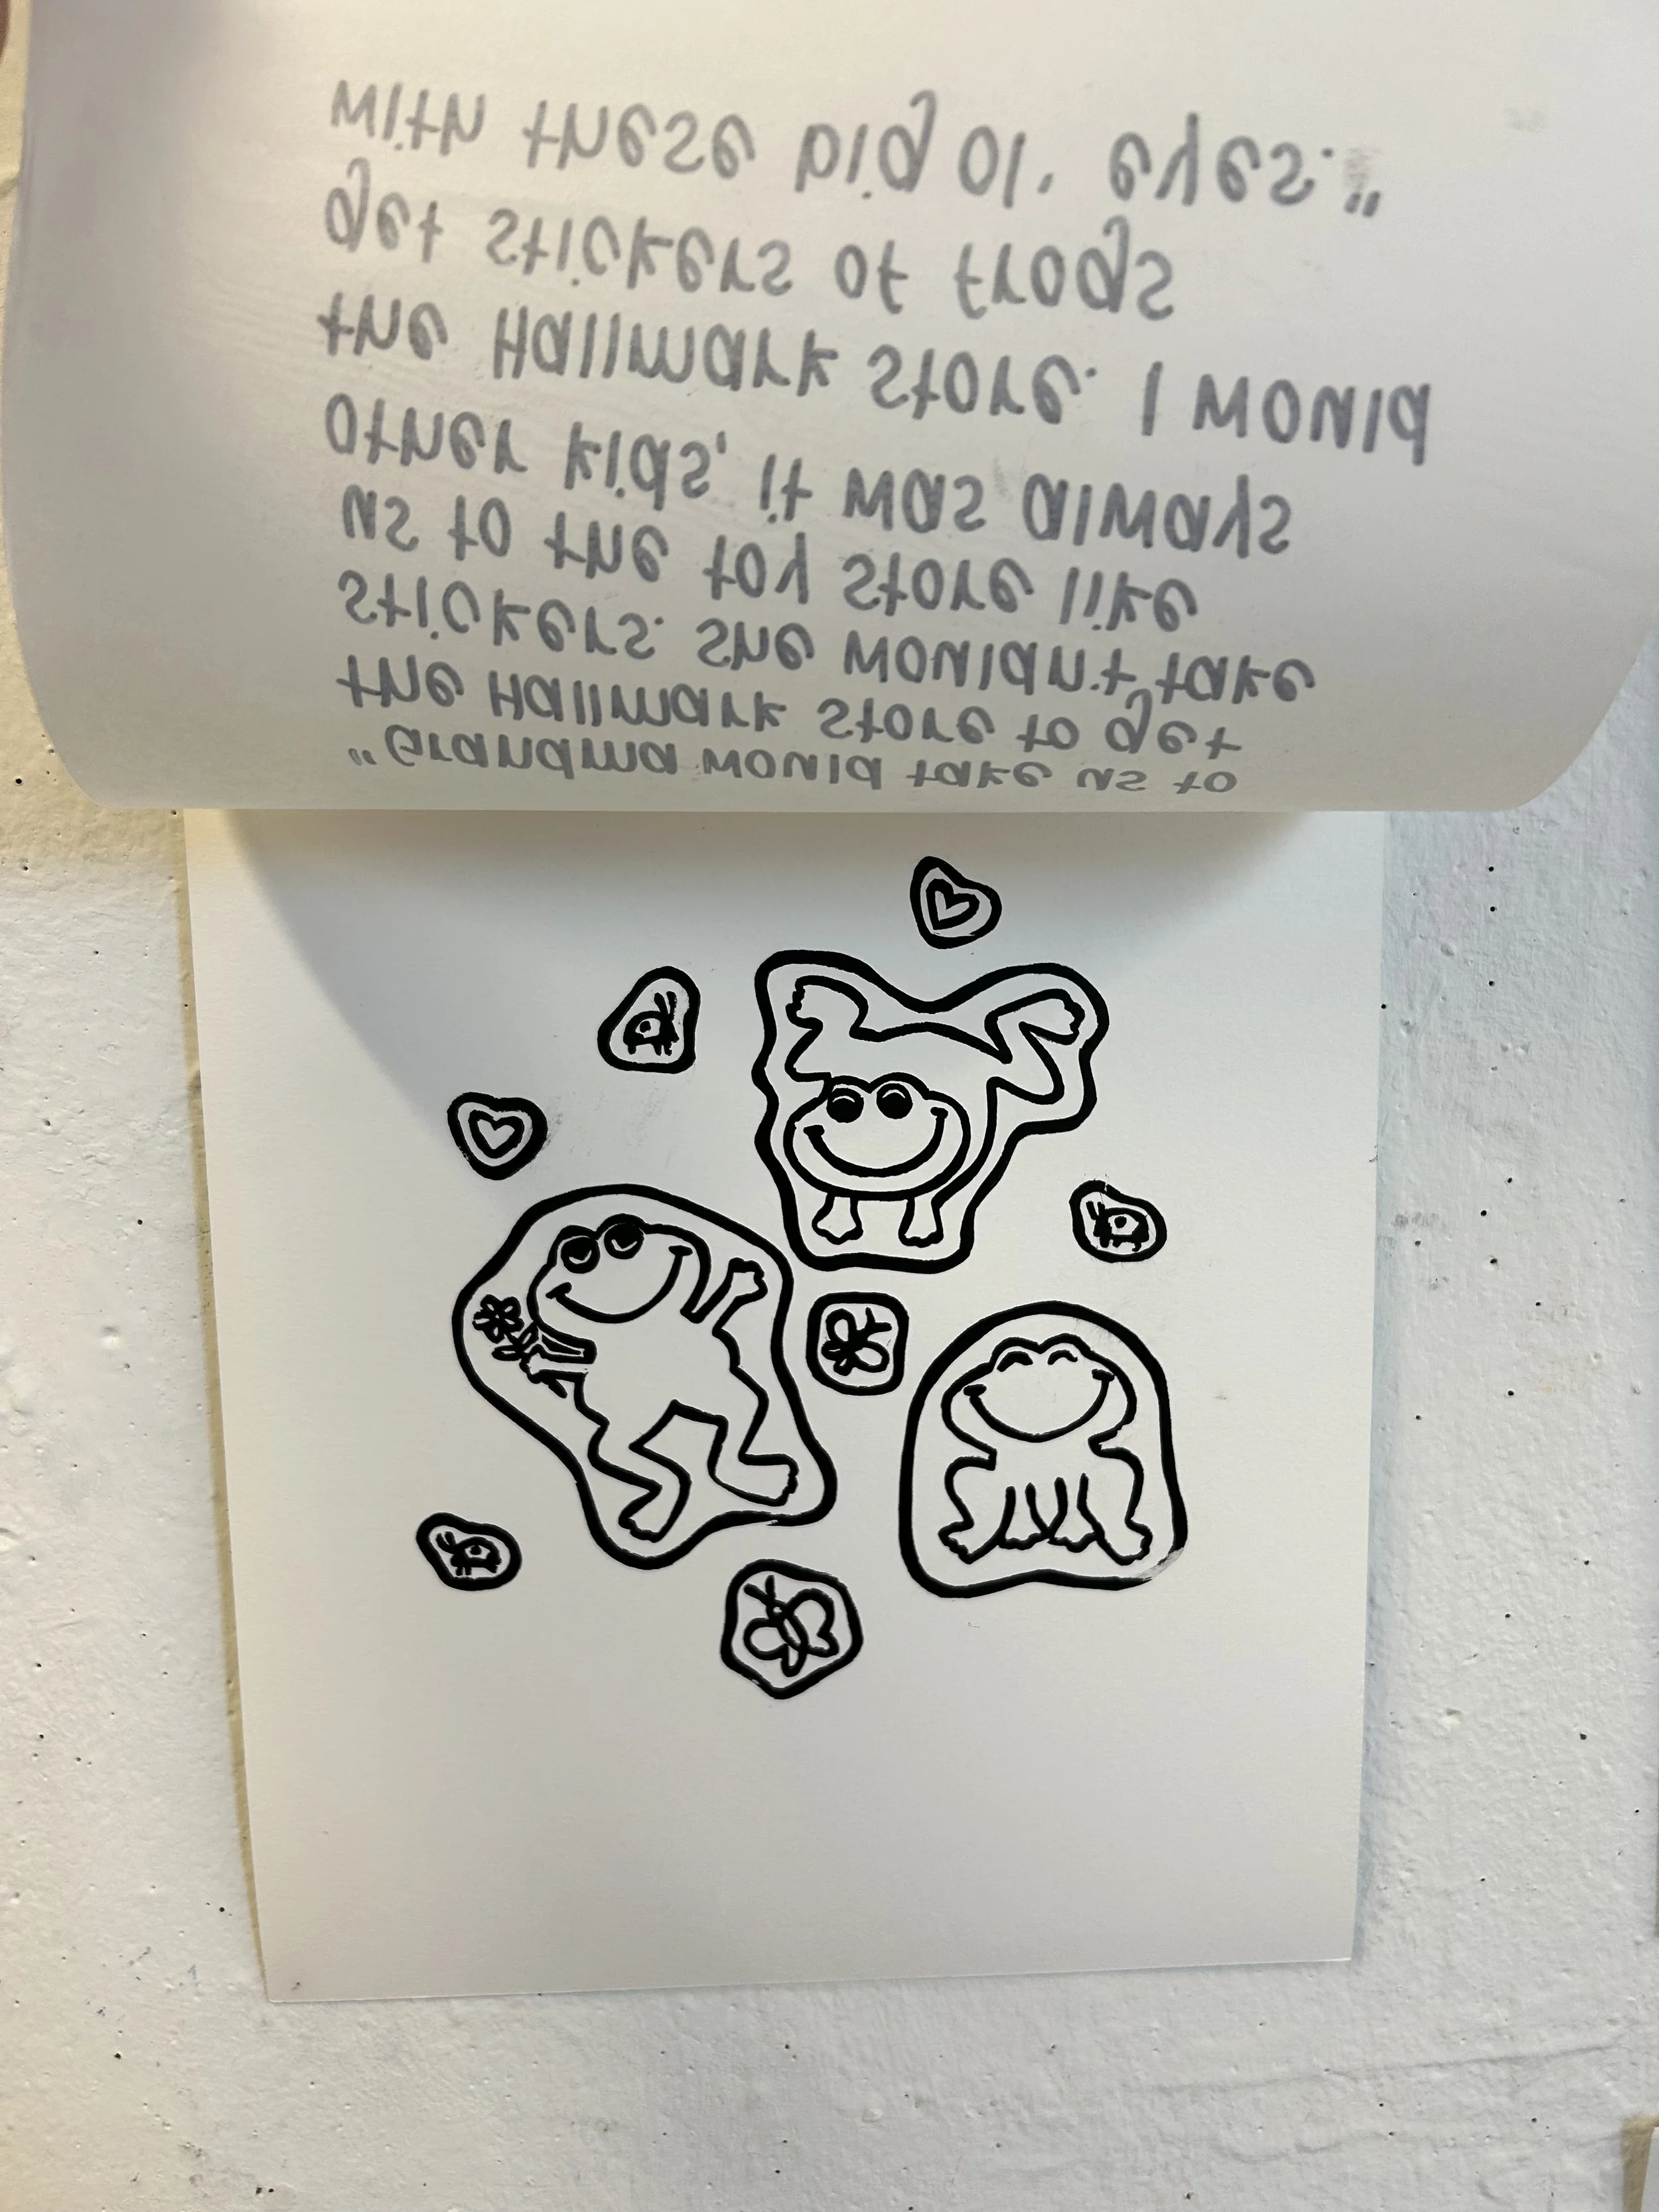 "Grandma would take us to
the Hallmark store to get
stickers. She wouldn't take
us to the toy store like
other kids, it was always
the Hallmark store. I would
get stickers of frogs
with these big ol' eyes."